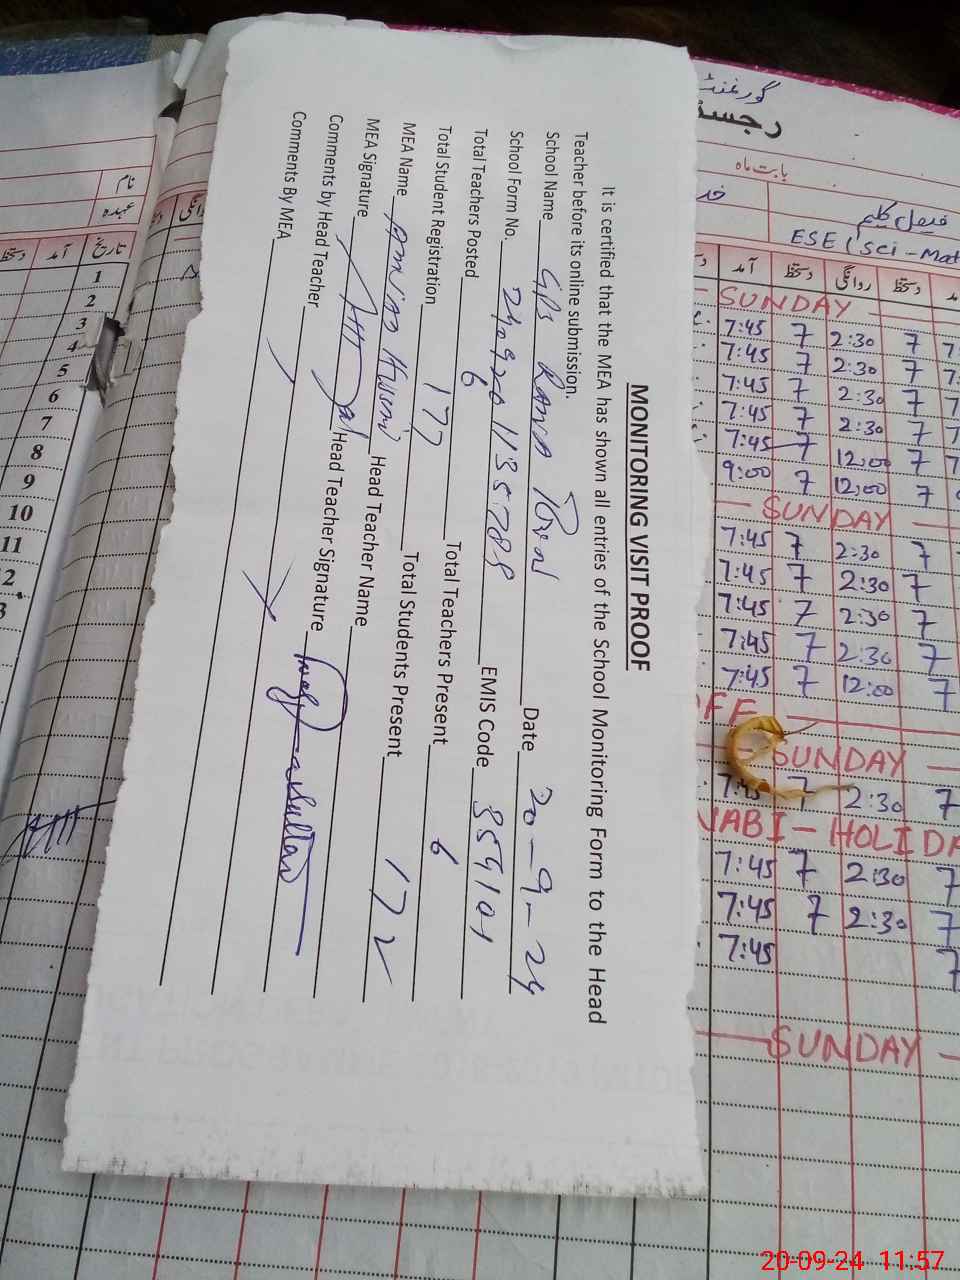 MONITORING VISIT PROOF
It is certified that the MEA has shown all entries of the School Monitoring Form to the Head
Teacher before its online submission.
School Name GPS Date 20-9-24
School Form No. EMIS Code
Total Teachers Posted 6 Total Teachers Present 6
Total Student Registration 177 Total Students Present 172
MEA Name Head Teacher Name
MEA Signature Head Teacher Signature
Comments by Head Teacher
Comments By MEA
نام
عہدہ
تاریخ آمد دستخط
1
2
3
4
5
6
7
8
9
10
11
گورنمنٹ
بابت ماہ
فیصل کلیم
ESE (Sci-Mat
آمد دستخط روانگی دستخط
SUNDAY
7:45 7 2:30 7
7:45 7 2:30 7
7:45 7 2:30 7
7:45 7 2:30 7
7:45 7 12:00 7
9:00 7 12:00 7
SUNDAY
7:45 7 2:30 7
7:45 7 2:30 7
7:45 7 2:30 7
7:45 7 2:30 7
7:45 7 12:00 7
FF
SUNDAY
7:45 7 2:30 7
NABI - HOLIDA
7:45 7 2:30 7
7:45 7 2:30 7
7:45 7
SUNDAY
20-09-24 11:57